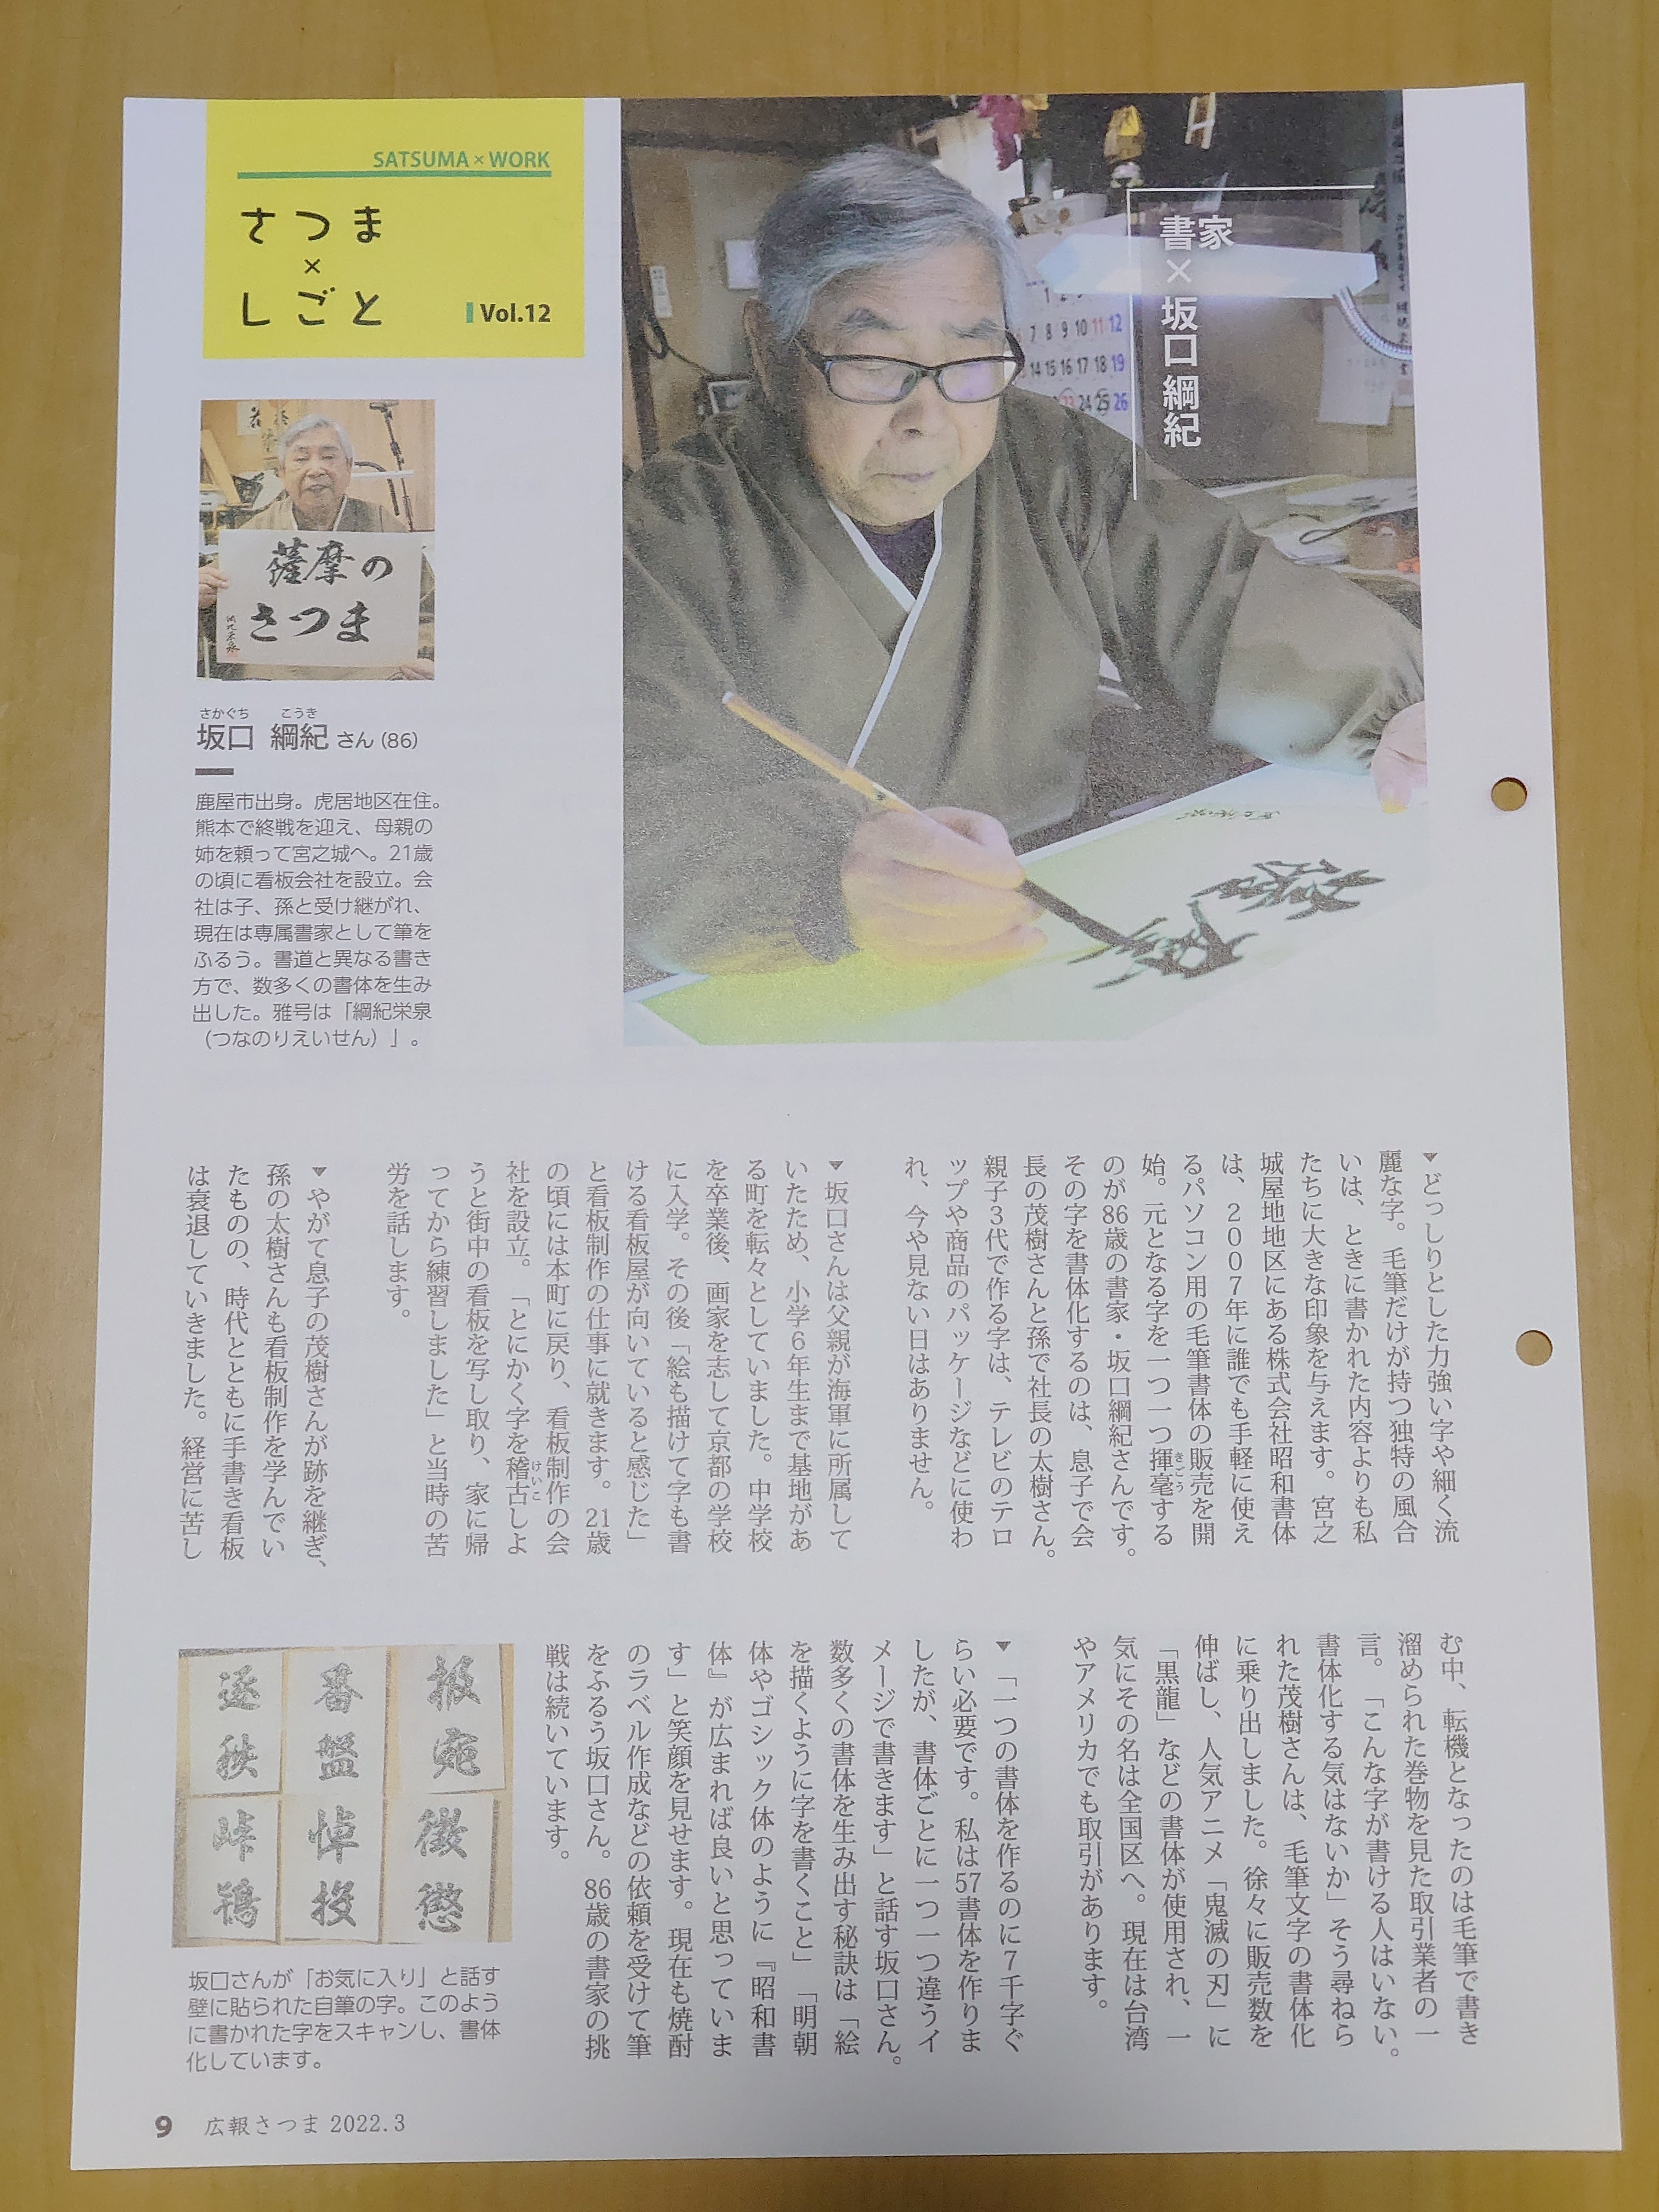 SATSUMA×WORK
さつま
×
しごと
Vol.12
書家
×
坂口 綱紀
1 2
7 8 9 10 11 12
14 15 16 17 18 19
23 24 25 26
薩摩の
さつま
さかぐち こうき
坂口 綱紀 さん (86)
鹿屋市出身。虎居地区在住。
熊本で終戦を迎え、母親の
姉を頼って宮之城へ。21歳
の頃に看板会社を設立。会
社は子、孫と受け継がれ、
現在は専属書家として筆を
ふるう。書道と異なる書き
方で、数多くの書体を生み
出した。雅号は「綱紀栄泉
（つなのりえいせん）」。
▼どっしりとした力強い字や細く流
麗な字。毛筆だけが持つ独特の風合
いは、ときに書かれた内容よりも私
たちに大きな印象を与えます。宮之
城屋地地区にある株式会社昭和書体
は、２００７年に誰でも手軽に使え
るパソコン用の毛筆書体の販売を開
始。元となる字を一つ一つ揮毫する
きごう
のが86歳の書家・坂口綱紀さんです。
その字を書体化するのは、息子で会
長の茂樹さんと孫で社長の太樹さん。
親子３代で作る字は、テレビのテロ
ップや商品のパッケージなどに使わ
れ、今や見ない日はありません。
▼坂口さんは父親が海軍に所属して
いたため、小学６年生まで基地があ
る町を転々としていました。中学校
を卒業後、画家を志して京都の学校
に入学。その後「絵も描けて字も書
ける看板屋が向いていると感じた」
と看板制作の仕事に就きます。21歳
の頃には本町に戻り、看板制作の会
社を設立。「とにかく字を稽古しよ
けいこ
うと街中の看板を写し取り、家に帰
ってから練習しました」と当時の苦
労を話します。
▼やがて息子の茂樹さんが跡を継ぎ、
孫の太樹さんも看板制作を学んでい
たものの、時代とともに手書き看板
は衰退していきました。経営に苦し
む中、転機となったのは毛筆で書き
溜められた巻物を見た取引業者の一
言。「こんな字が書ける人はいない。
書体化する気はないか」そう尋ねら
れた茂樹さんは、毛筆文字の書体化
に乗り出しました。徐々に販売数を
伸ばし、人気アニメ「鬼滅の刃」に
「黒龍」などの書体が使用され、一
気にその名は全国区へ。現在は台湾
やアメリカでも取引があります。
▼「一つの書体を作るのに７千字ぐ
らい必要です。私は57書体を作りま
したが、書体ごとに一つ一つ違うイ
メージで書きます」と話す坂口さん。
数多くの書体を生み出す秘訣は「絵
を描くように字を書くこと」「明朝
体やゴシック体のように『昭和書
体』が広まれば良いと思っていま
す」と笑顔を見せます。現在も焼酎
のラベル作成などの依頼を受けて筆
をふるう坂口さん。86歳の書家の挑
戦は続いています。
報宛
徴懲
番盤
悼投
逐秩
峠鶏
坂口さんが「お気に入り」と話す
壁に貼られた自筆の字。このよう
に書かれた字をスキャンし、書体
化しています。
9 広報さつま 2022.3